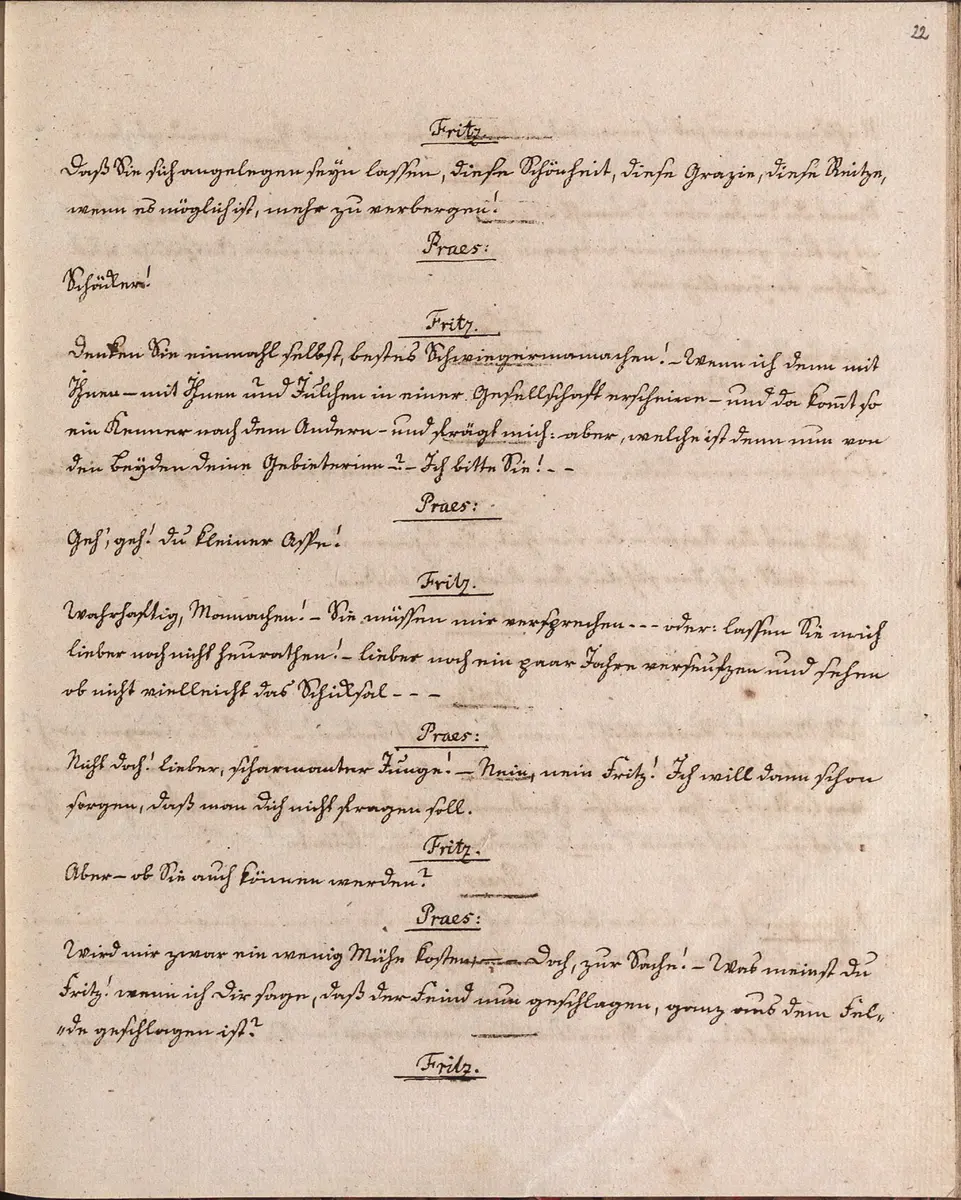 22
Fritz.
Daß Sie sich angelegen seyn lassen, diese Schönheit, diese Grazie, diese Reitze,
wenn es möglich ist, mehr zu verbergen!
Praes:
Schäker!
Fritz.
Denken Sie einmahl selbst, bestes Schwiegermamachen! – Wenn ich denn mit
Ihnen – mit Ihnen und Julchen in einer Gesellschaft erscheine – und da kom̄t so
ein Kenner nach dem Andern – und frägt mich: aber, welche ist denn nun von
den Beyden deine Gebieterinn? – Ich bitte Sie! – –
Praes:
Geh', geh'! du kleiner Affe!
Fritz.
Wahrhaftig, Mamachen! – Sie müssen mir versprechen – – – oder: lassen Sie mich
lieber noch nicht heurathen! – lieber noch ein paar Jahre verseufzen und sehen
ob nicht vielleicht das Schiksal – – –
Praes:
Nicht doch! lieber, scharmanter Junge! – Nein, nein Fritz! Ich will dann schon
sorgen, daß man dich nicht fragen soll.
Fritz.
Aber – ob Sie auch können werden?
Praes:
Wird mir zwar ein wenig Mühe kosten – – Doch, zur Sache! – Was meinst du
Fritz! wenn ich dir sage, daß der Feind nun geschlagen, ganz aus dem Fel„
„de geschlagen ist?
Fritz.